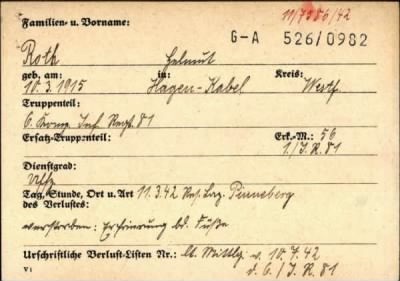 Familien- u. Vorname:
11/7586/42
G-A 526/0982
Roth Helmut
geb. am: in: Kreis:
10.3.1915 Hagen-Kabel Westf.
Truppenteil:
6. Komp. Inf. Regt. 81
Ersatz-Truppenteil: Erk.-M.: 56
1./I.R.81
Dienstgrad:
Uffz.
Tag, Stunde, Ort u. Art 11.3.42 Res. Laz. Pinneberg
des Verlustes:
verstorben: Erfrierung bd. Füße
Urschriftliche Verlust-Listen Nr.: lt. Mittlg. v. 10.7.42
V1 d. 6./I.R.81